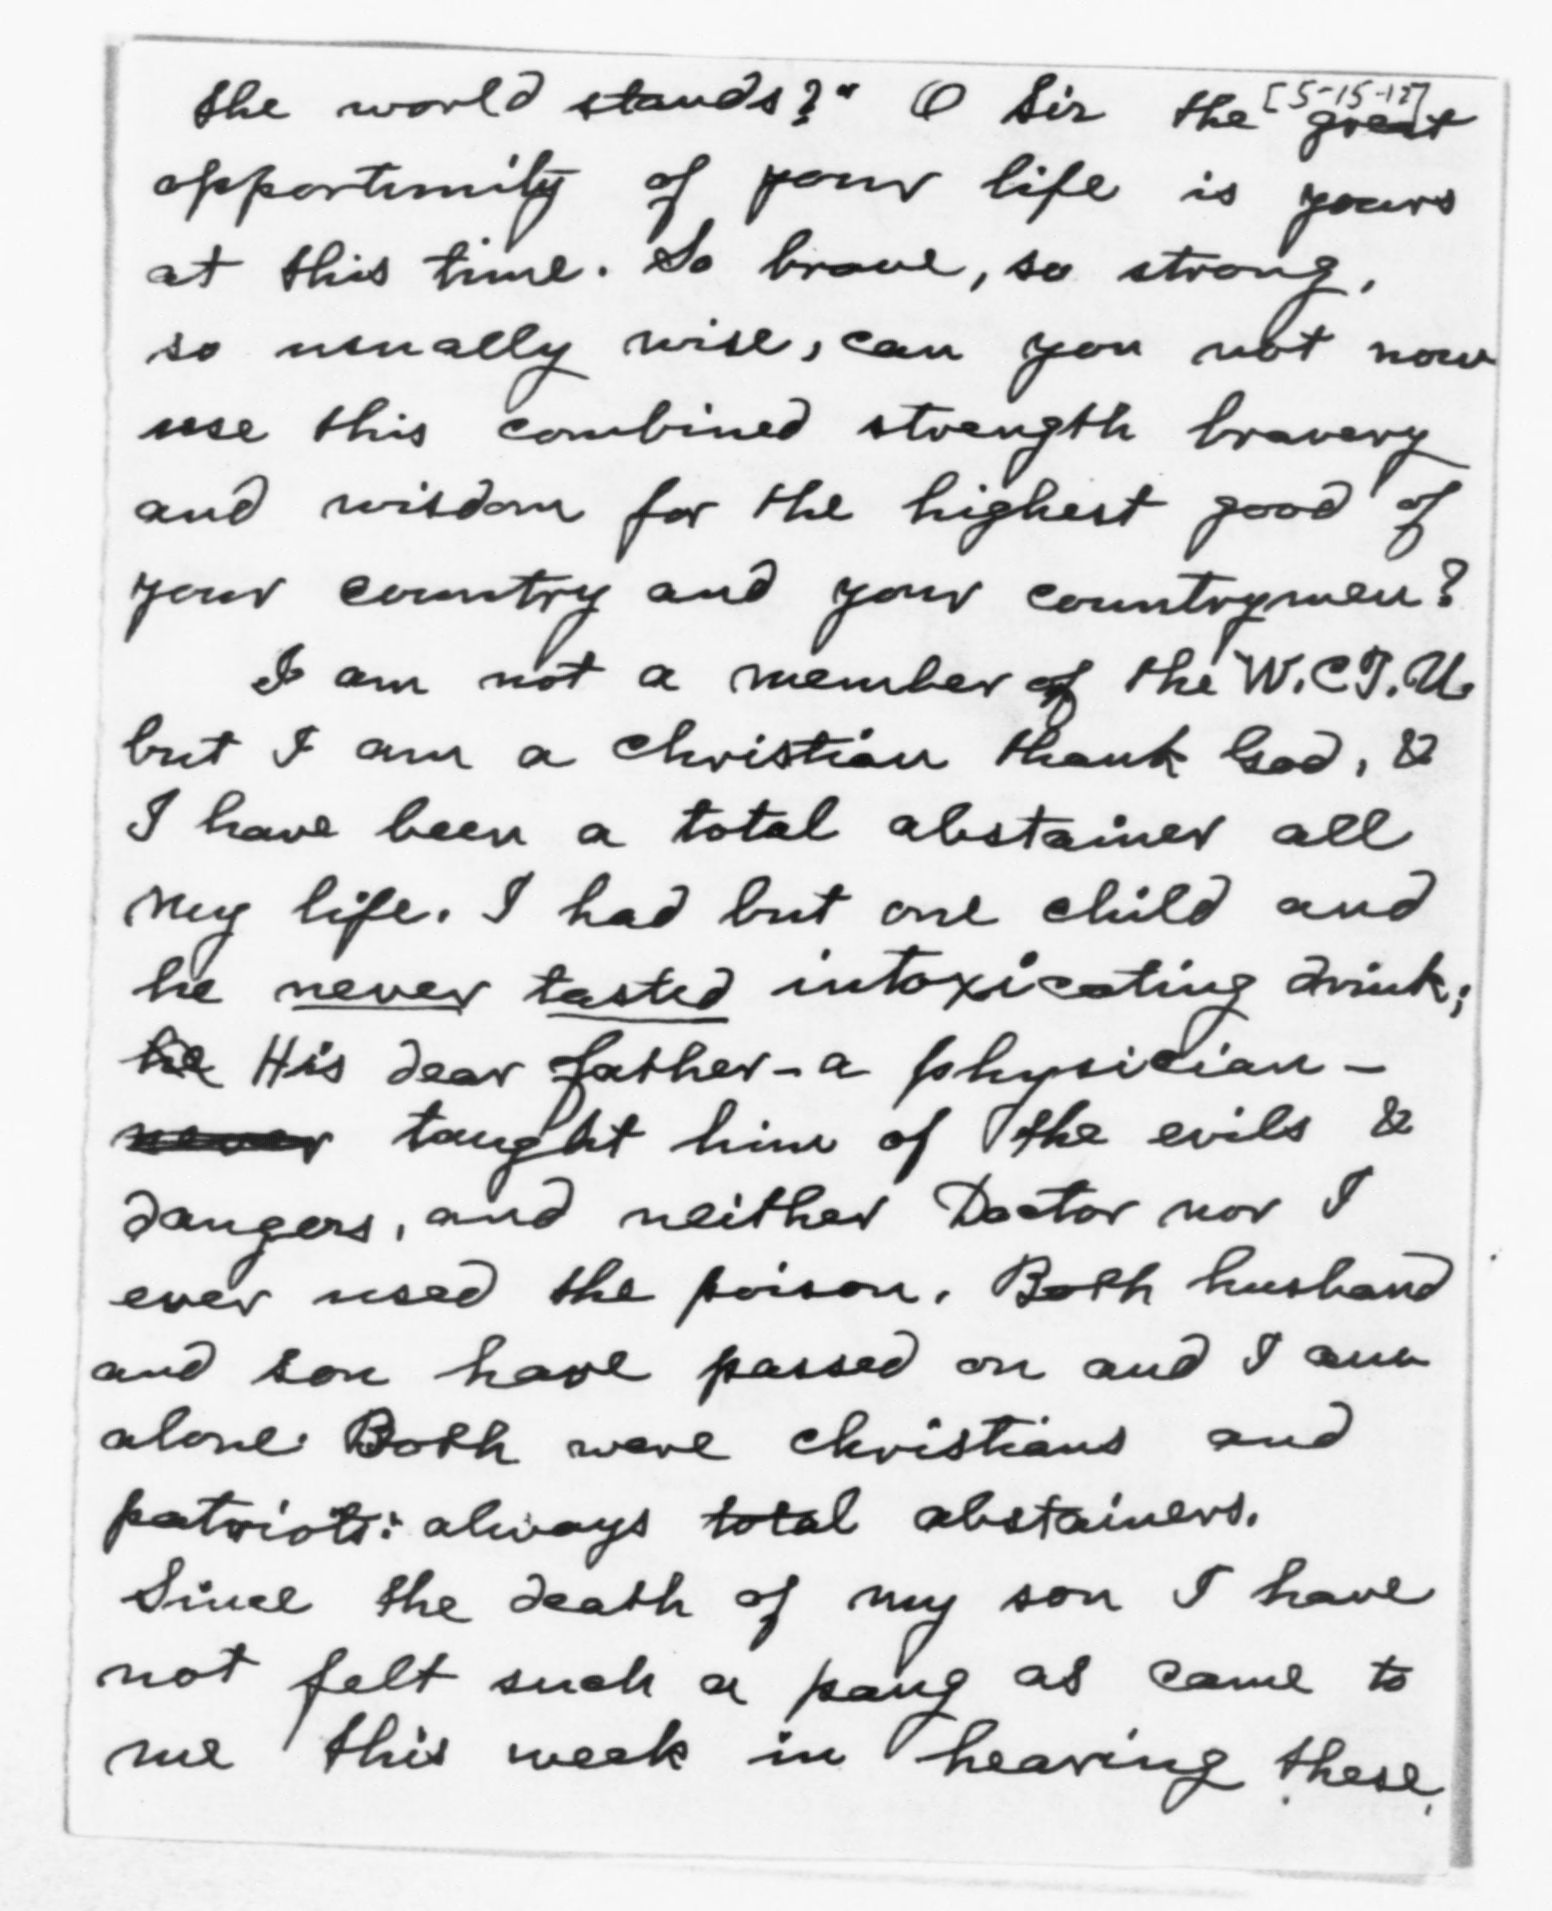 [5-15-17]
the world stands?" O Sir the great
opportunity of your life is yours
at this time. So brave, so strong,
so usually wise, can you not now
use this combined strength bravery
and wisdom for the highest good of
your country and your countrymen?
I am not a member of the W.C.T.U.
but I am a christian thank God, &
I have been a total abstainer all
my life. I had but one child and
he never tasted intoxicating drink;
he His dear father - a physician -
never taught him of the evils &
dangers, and neither Doctor nor I
ever used the poison. Both husband
and son have passed on and I am
alone. Both were christians and
patriots: always total abstainers.
Since the death of my son I have
not felt such a pang as came to
me this week in hearing these